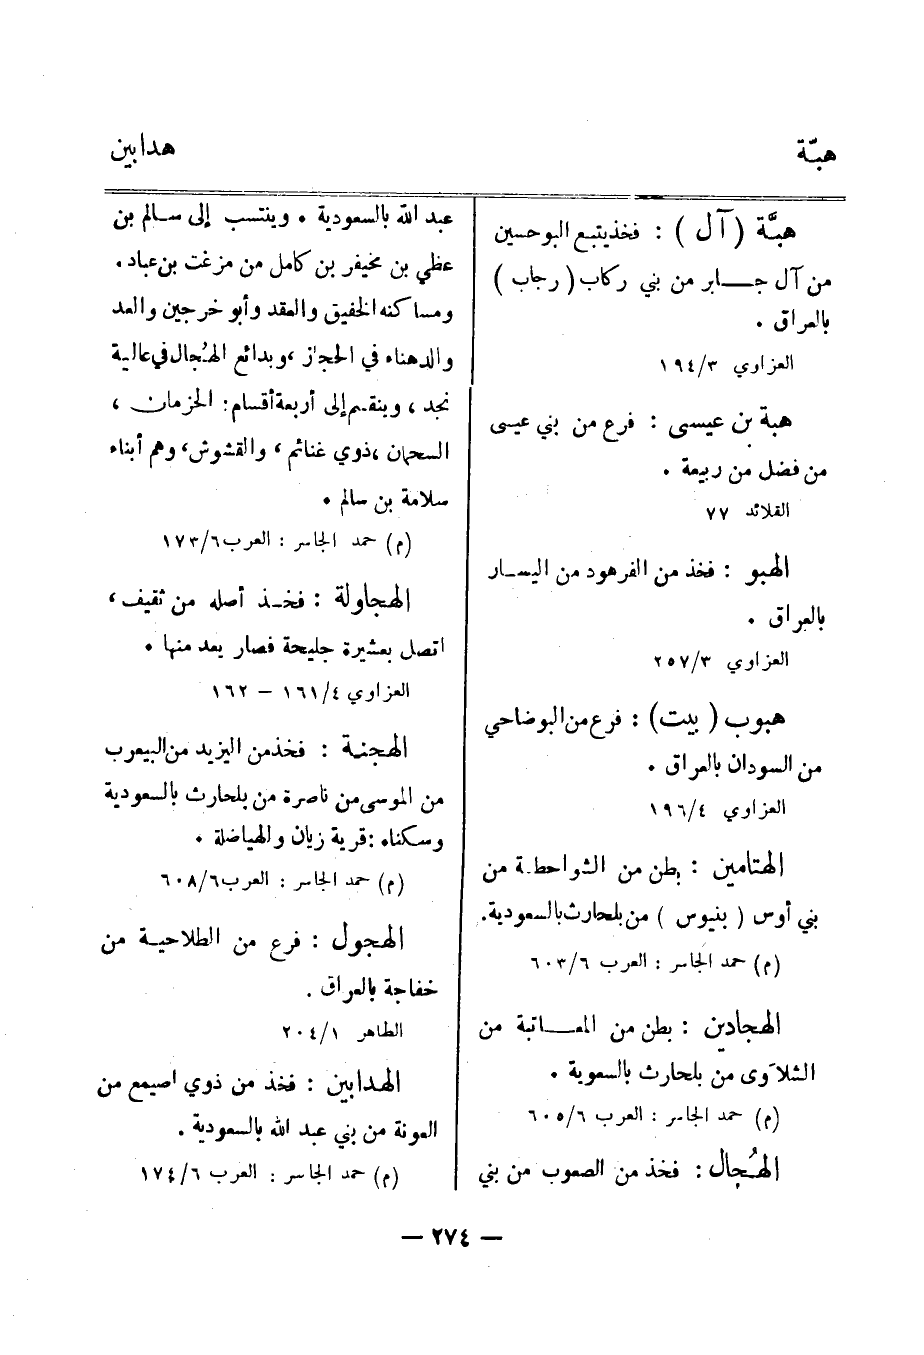 هبّة
هدابين
هبَّة ( آل ) : فخذ يتبع البوحسين
من آل جابر من بني ركاب ( رجاب )
بالعراق .
العزاوي ١٩٤/٣
هبة بن عيسى : فرع من بني عيسى
من فضل من ربيعة .
القلائد ٧٧
الهبو : فخذ من الفرهود من اليسار
بالعراق .
العزاوي ٢٥٧/٣
هبوب ( بيت ) : فرع من البوضاحي
من السودان بالعراق .
العزاوي ١٩٦/٤
الهتامين : بطن من الشواحطة من
بني أوس ( بنيوس ) من بلحارث بالسعودية .
(م) حمد الجاسر : العرب ٦٠٣/٦
الهجادين : بطن من المعاتبة من
الشلاَوى من بلحارث بالسعوية .
(م) حمد الجاسر : العرب ٦٠٥/٦
الهُجال : فخذ من الصعوب من بني
عبد الله بالسعودية . وينتسب إلى سالم بن
عظي بن مخيفر بن كامل من مزغت بن عباد .
ومساكنه الخفيق والعقد وأبو خرجين والعد
والدهناء في الحجاز ، وبدائع الهُجال في عالية
نجد ، وينقسم إلى أربعة أقسام : الخزمان ،
السحمان ، ذوي غنائم ، والقشوش ، وهم أبناء
سلامة بن سالم .
(م) حمد الجاسر : العرب ١٧٣/٦
الهجاولة : فخذ أصله من ثقيف ،
اتصل بعشيرة جليحة فصار بعد منها .
العزاوي ١٦١/٤ – ١٦٢
الهجنة : فخذ من اليزيد من البيعرب
من الموسى من ناصرة من بلحارث بالسعودية
وسكناه : قرية زيان والهياضلة .
(م) حمد الجاسر : العرب ٦٠٨/٦
الهجول : فرع من الطلاحية من
خفاجة بالعراق .
الطاهر ٢٠٤/١
الهدابين : فخذ من ذوي اصيمع من
العونة من بني عبد الله بالسعودية .
(م) حمد الجاسر : العرب ١٧٤/٦
— ٢٧٤ —